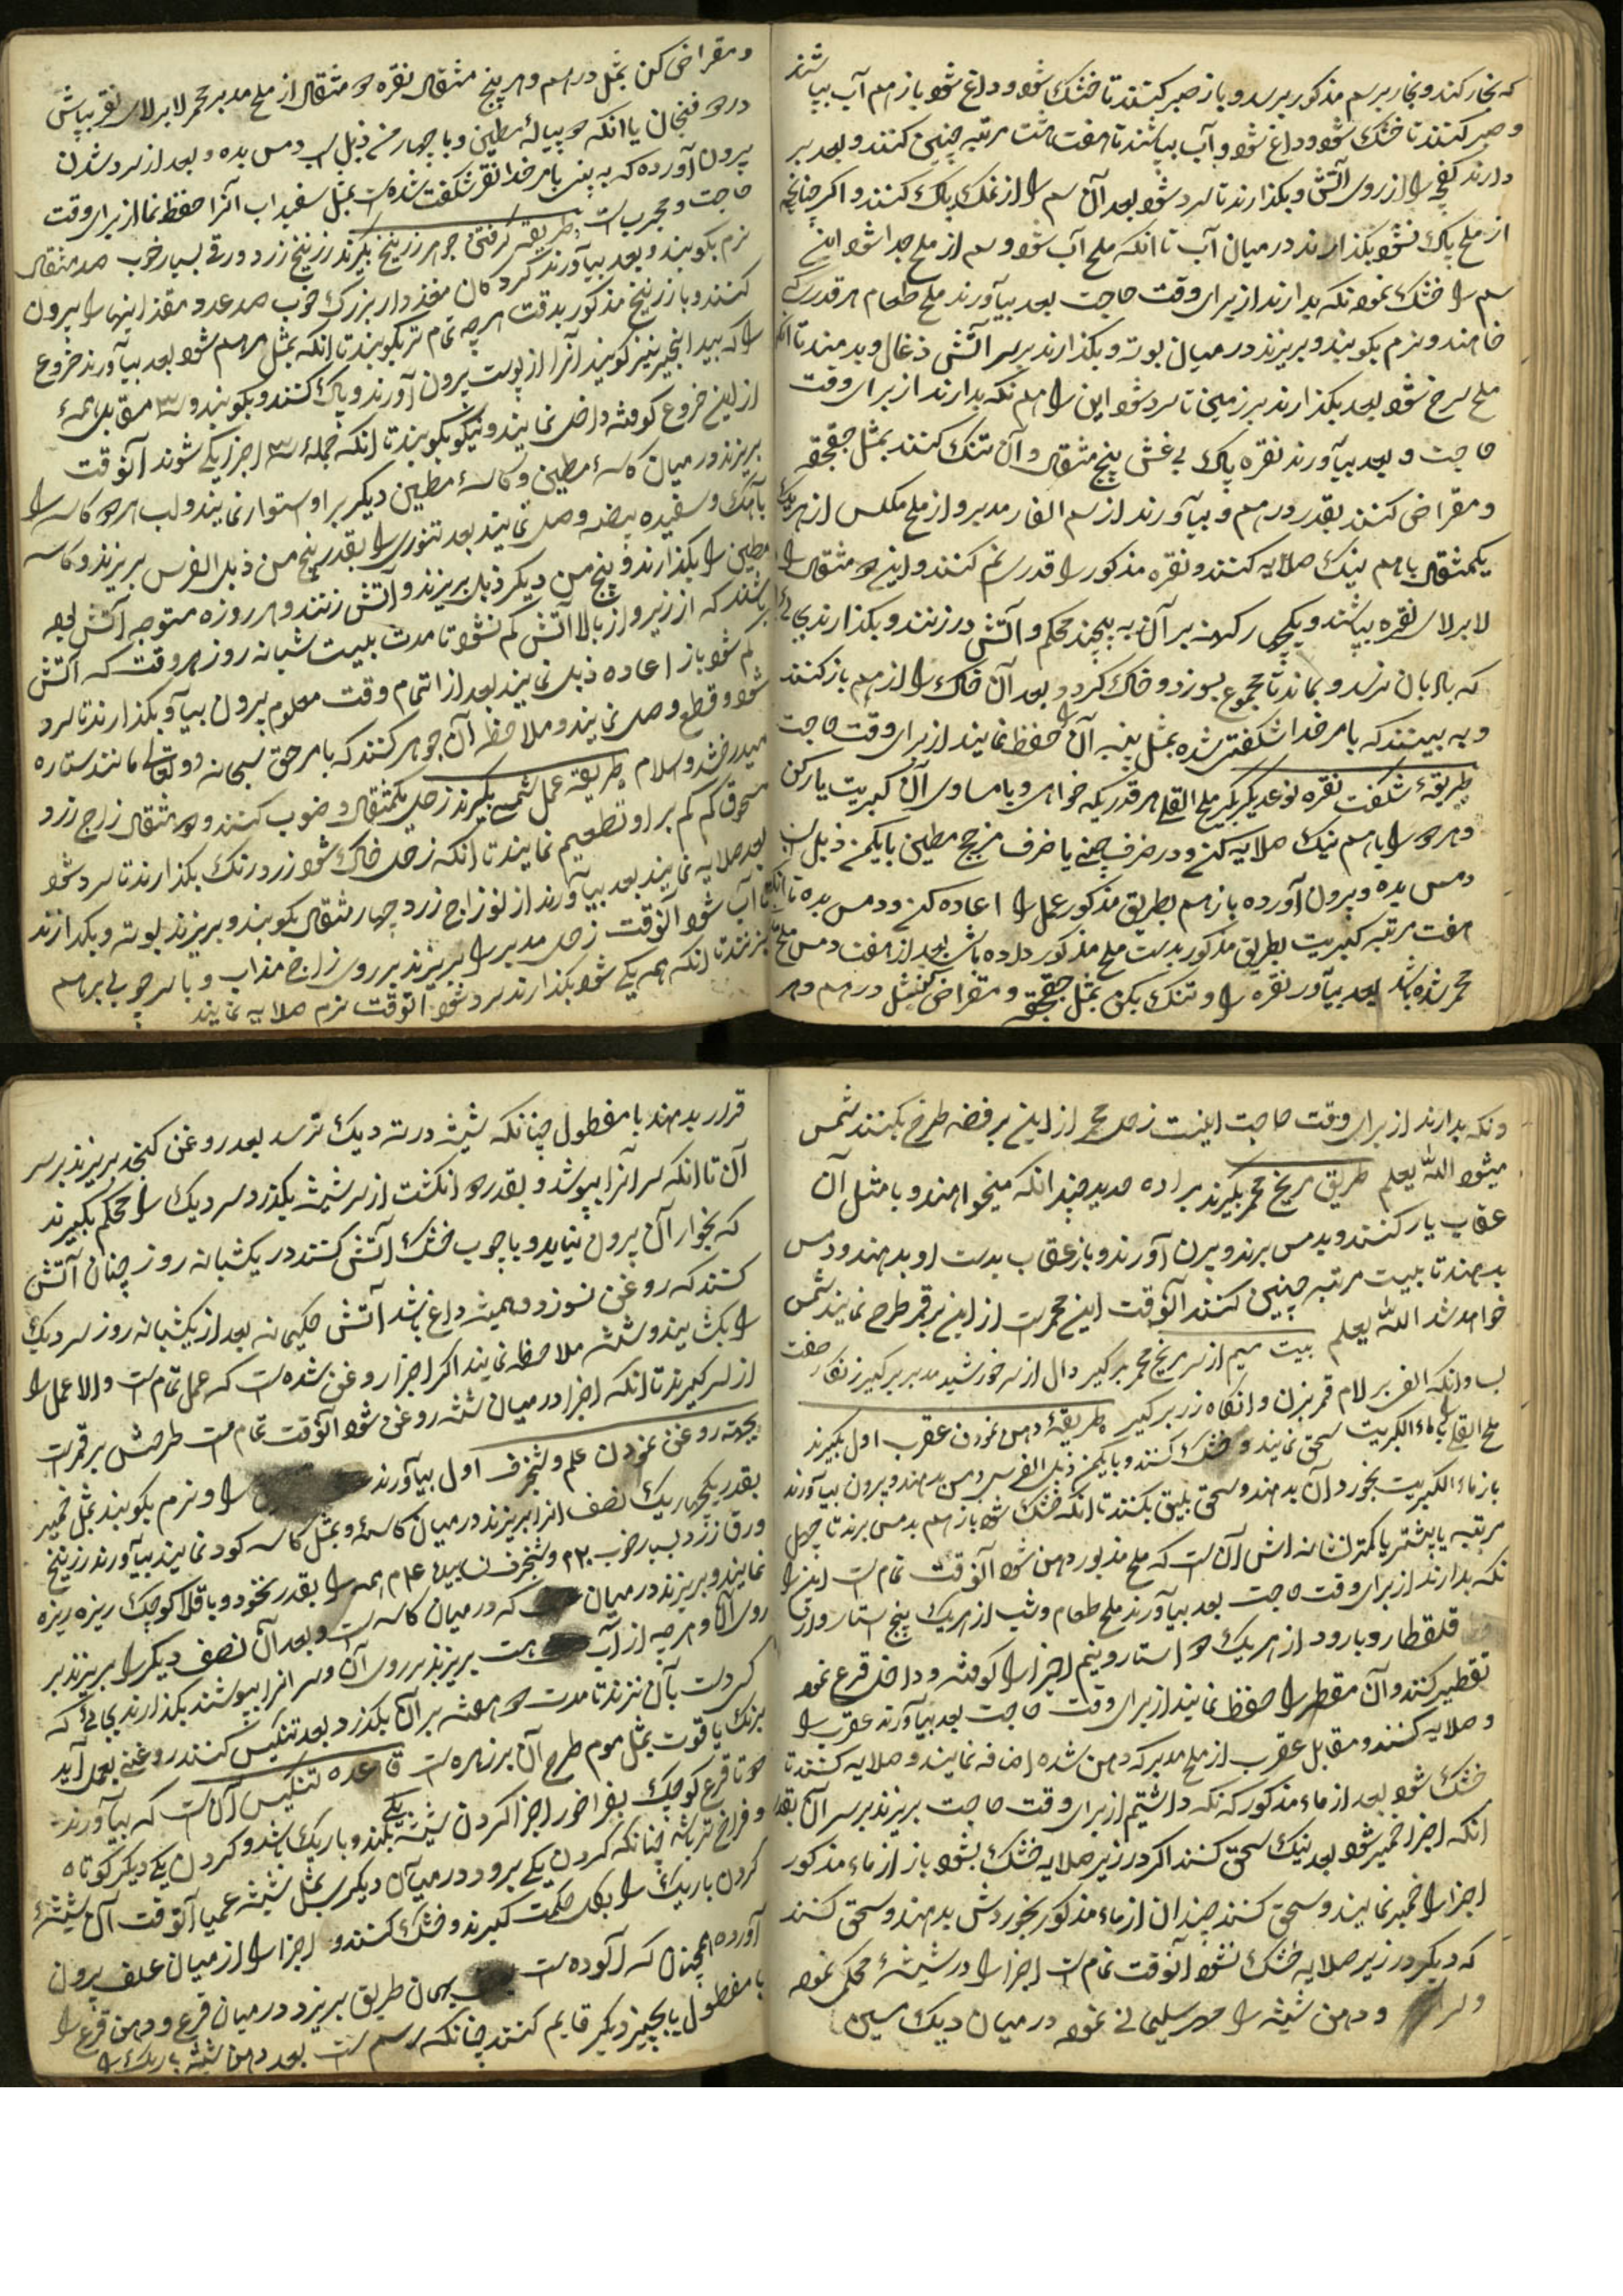 که بخار کند و بخار برسم مذکور برسد و باز صبر کنند تا خشک شود و داغ شود باز هم آب بپاشند
و صبر کنند تا خشک شود و داغ شود و آب بپاشند تا هفت هشت مرتبه چنین کنند و بعد بر
دارند کفچه را از روی آتش و بکذارند تا سرد شود بعد آن سم را از نمک پاک کنند و اکر چنانچه
از ملح پاک نشود بکذارند در میان آب تا انکه ملح آب شود و سم از ملح جدا شود این
سم را خشک نموده نکه بدارند از برای وقت حاجت بعد بیآورند ملح طعام هر قدر که
خواهند و نرم بکوبند و بریزند در میان بوته و بکذارند بر سر آتش ذغال و بدمند تا انکه
ملح سرخ شود بعد بکذارند بر زمین تا سرد شود این را هم نکه بدارند از برای وقت
حاجت و بعد بیآورند نقره پاک بی غش پنج مثقال و آن تنک کنند بمثل جقجقه
و مقراض کنند بقدر درهم و بیآورند از سم الفار مدبر و از ملح مکلس از هریک
یکمثقال باهم نیک صلایه کنند و نقره مذکور را قدری نم کنند و این دو مثقال را
لابرلای نقره بپاشند و یکچارک کهنه بر آن به پیچند محکم و آتش در زنند و بکذارند بجائی
که باد بآن نرسد و بماند تا مجموع بسوزد و خاک کردد و بعد آن خاک را از هم باز کنند
و به بینند که بامر خدا شکفتن شده بمثل پنبه آن را حفظ نمایند از برای وقت حاجت
طریقهٔ شکفت نقره نوعدیکر بکیر ملح القلی هر قدریکه خواهی و با مساوی آن کبریت یار کن
و هردو را باهم نیک صلایه کن و در ظرف چینی یا ظرف مزجج مطین با یکمن ذبل اسب
دمس بده و برون آورده باز هم بطریق مذکور عمل را اعاده کن و دمس بده تا انکه
هفت مرتبه کبریت بطریق مذکور بدست ملح مذکور داده باشی بعد از هفت دمس ملح
محمر شده باشد بعد بیآور نقره را و تنک بکن بمثل جقجقه و مقراض کن بمثل درهم و هر
و مقراض کن بمثل درهم و هر پنج مثقال نقره دو مثقال از ملح مدبر محمر لابرلای نقره بپاش
در دو فنجان یا انکه دو پیالهٔ مطین و با چهار من ذبل اسب دمس بده و بعد از سرد شدن
برون آورده که به بینی بامر خدا نقره شکفت شده است بمثل سفیداب آنرا حفظ نما از برای وقت
حاجت و مجرب است طریقهٔ کرفتن جوهر زرنیخ بکیرند زرنیخ زرد ورقی بسیار خوب صد مثقال
نرم بکوبند و بعد بیآورند کردکان مغز دار بزرک خوب صد عدد مغز اینها را برون
کنند و با زرنیخ مذکور بدقت هر چه تمام تر بکوبند تا انکه بمثل مرهم شود بعد بیآورند خروع
را که بید انجیر نیز کویند آنرا از پوست برون آورند و پاک کنند و بکوبند و مقابل همهٔ
از این خروع کوفته داخل نمایند و نیکو بکوبند تا انکه جملهٔ اجزا یکی شوند آنوقت
بریزند در میان کاسهٔ مطین و کاسهٔ مطین دیکر بر او استوار نمایند و لب هر دو کاسه را
بآهک و سفیده بیضه وصل نمایند بعد تنوری را بقدر پنج من ذبل الفرس بریزند و کاسه
مطین را بکذارند و پنج من دیکر ذبل بریزند و آتش زنند و هر روزه متوجه آتش بوده
باشند که از زیر و از بالا آتش کم نشود تا مدت بیست شبانه روز هر وقت که آتش
کم شود باز اعاده ذبل نمایند بعد از اتمام وقت معلوم برون بیآ و بکذارند تا سرد
شود و قطع وصل نمایند و ملاحظه آن جوهر کنند که بامر حق سبحانه و تعالی مانند ستاره
میدرخشد والسلام طریقهٔ عمل شمسی بکیرند زحل یکمثقال و ذوب کنند و دو مثقال زاج زرد
مسحوق کم کم بر او تطعیم نمایند تا انکه زحل خاک شود زرد رنک بکذارند تا سرد شود
بعد صلایه نمایند بعد بیآورند از نو زاج زرد چهار مثقال بکوبند و بریزند ببوته و بکدازند
تا آب شود آنوقت زحل مدبر را بریزند بر روی زاج مذاب و با سر چوبی بر هم
بزنند تا انکه همه یکی شود بکذارند سرد شود آنوقت نرم صلایه نمایند
ونکه بدارند از برای وقت حاجت اینست زحل محمر از این بر فضه طرح بکنند شمس
میشود الله یعلم طریق مریخ محمر بکیرند براده حدید چندانکه میخواهند و با مثل آن
عقاب یار کنند و بدمس برند و برن آورند و باز عقاب بدست او بدهند و دمس
بدهند تا بیست مرتبه چنین کنند آنوقت این محمر است از این بر قمر طرح نمایند شمس
خواهد شد الله یعلم بیت میم از سر مریخ محمر بر کیر دال از سر خورشید مدبر بر کیر زنکار صفت
بساو انکه الف بر لام قمر بزن و انکاه زر بر کیر طریقهٔ دهن نمودن عقرب اول بکیرند
ملح القلی را بماء الکبریت سحق نمایند و خشک کنند و با یکمن ذبل الفرس دمس بدهند و برون بیآورند
باز ماء الکبریت بخورد آن بدهند و سحق بلیق بکنند تا انکه خشک شود باز هم بدمس برند تا چهل
مرتبه یا بیشتر یا کمتر نشانه اش آن است که ملح مذبور دهن شود آنوقت تمام است این را
نکه بدارند از برای وقت حاجت بعد بیآورند ملح طعام و شب از هریک پنج استار و از
قلقطار و بارود از هریک دو استار و نیم اجزا را کوفته و داخل قرع نموده
تقطیر کنند و آن مقطر را حفظ نمایند از برای وقت حاجت بعد بیآورند عقرب را
و صلایه کنند و مقابل عقرب از ملح مدبر که دهن شده اضافه نمایند و صلایه کنند تا
خشک شود بعد از ماء مذکور که نکه داشتیم از برای وقت حاجت بریزند بر سر آن بقدر
انکه اجزا خمیر شود بعد نیک سحق کنند اکر در زیر صلایه خشک بشود باز از ماء مذکور
اجزا را خمیر نمایند و سحق کنند چندان از ماء مذکور بخوردش بدهند و سحق کنند
که دیکر در زیر صلایه خشک نشود آنوقت تمام است اجزا را در شیشهٔ محکمی نموده
و دهن شیشه را مهر سلیمانی نموده در میان دیک مسین
قرار بدهند با مفطول چنانکه شیشه در ته دیک نرسد بعد روغن کنجد بریزند بر سر
آن تا انکه سر آنرا بپوشد و بقدر دو انکشت از سر شیشه بکذرد سر دیک را محکم بکیرند
که بخوار آن برون نیاید و با چوب خشک آتش کنند در یکشبانه روز چنان آتش
کنند که روغن نسوزد و همیشه داغ باشد آتش حکیمانه بعد از یکشبانه روز سر دیک
را بکشایند و شیشه ملاحظه نمایند اکر اجزا روغن شده است که عمل تمام است و الا عمل را
از سر کیرند تا انکه اجزا در میان شیشه روغن شود آنوقت تمام است طرحش بر قمر است
بجهة روغن نمودن علم و شنجرف اول بیآورند را و نرم بکوبند بمثل خمیر
بقدر یکچهاریک نصف انرا بریزند در میان کاسهٔ و بمثل کاسه کود نمایند بیآورند زرنیخ
ورق زرد بسیار خوب ۲۰ و شنجرف همه را بقدر نخود و باقلا کوچک ریزه ریزه
نمایند و بریزند در میان که در میان کاسه است و بعد آن نصف دیکر را بریزند بر
روی آن و هر چه از آب هست بریزند بر روی آن و سر انرا بپوشند بکذارند بجائی که
کسی دست بآن نزند تا مدت دو هفته بر آن بکذرد بعد تنکیس کنند روغنی بعمل آید
برنک یاقوت بمثل موم طرح آن بر زهره است قاعده تنکیس آن است که بیآورند
دو تا قرع کوچک بفراخور اجزا کردن شیشه یکی بلند و باریک باشد و کردن یکی دیکر کوتاه
و فراخ تر باشد چنانکه کردن یکی برود در میان دیکری بمثل شیشه عمیا آنوقت آن شیشهٔ
کردن باریک را بکل حکمت کیرند و خشک کنند و اجزا را از میان علف برون
آورده همچنان که آلوده است بهمان طریق بریزد در میان قرع و دهن قرع را
با مفطول یا بچیز دیکر قایم کنند چنانکه رسم است بعد دهن شیشه باریک را